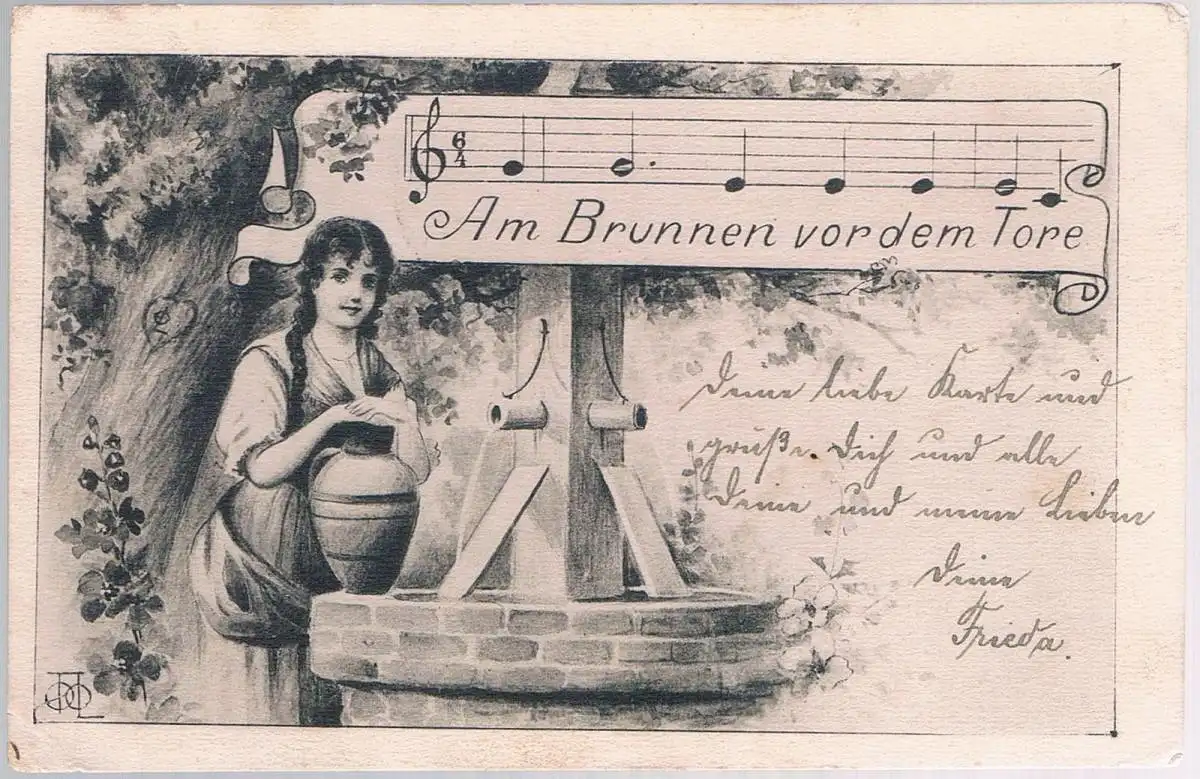 6
4
Am Brunnen vor dem Tore
Deine liebe Karte und
grüße Dich und alle
Deine und meine Lieben
Deine
Frieda.